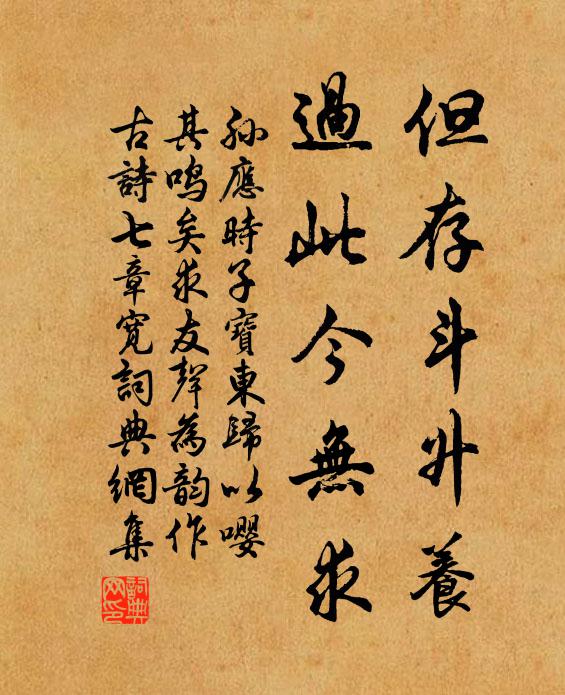 但存斗升養
過此今無求
孙應時子寶東歸以嘤
其鸣矣求友聲為韵作
古詩七章寬詞典網集
詞典
网印